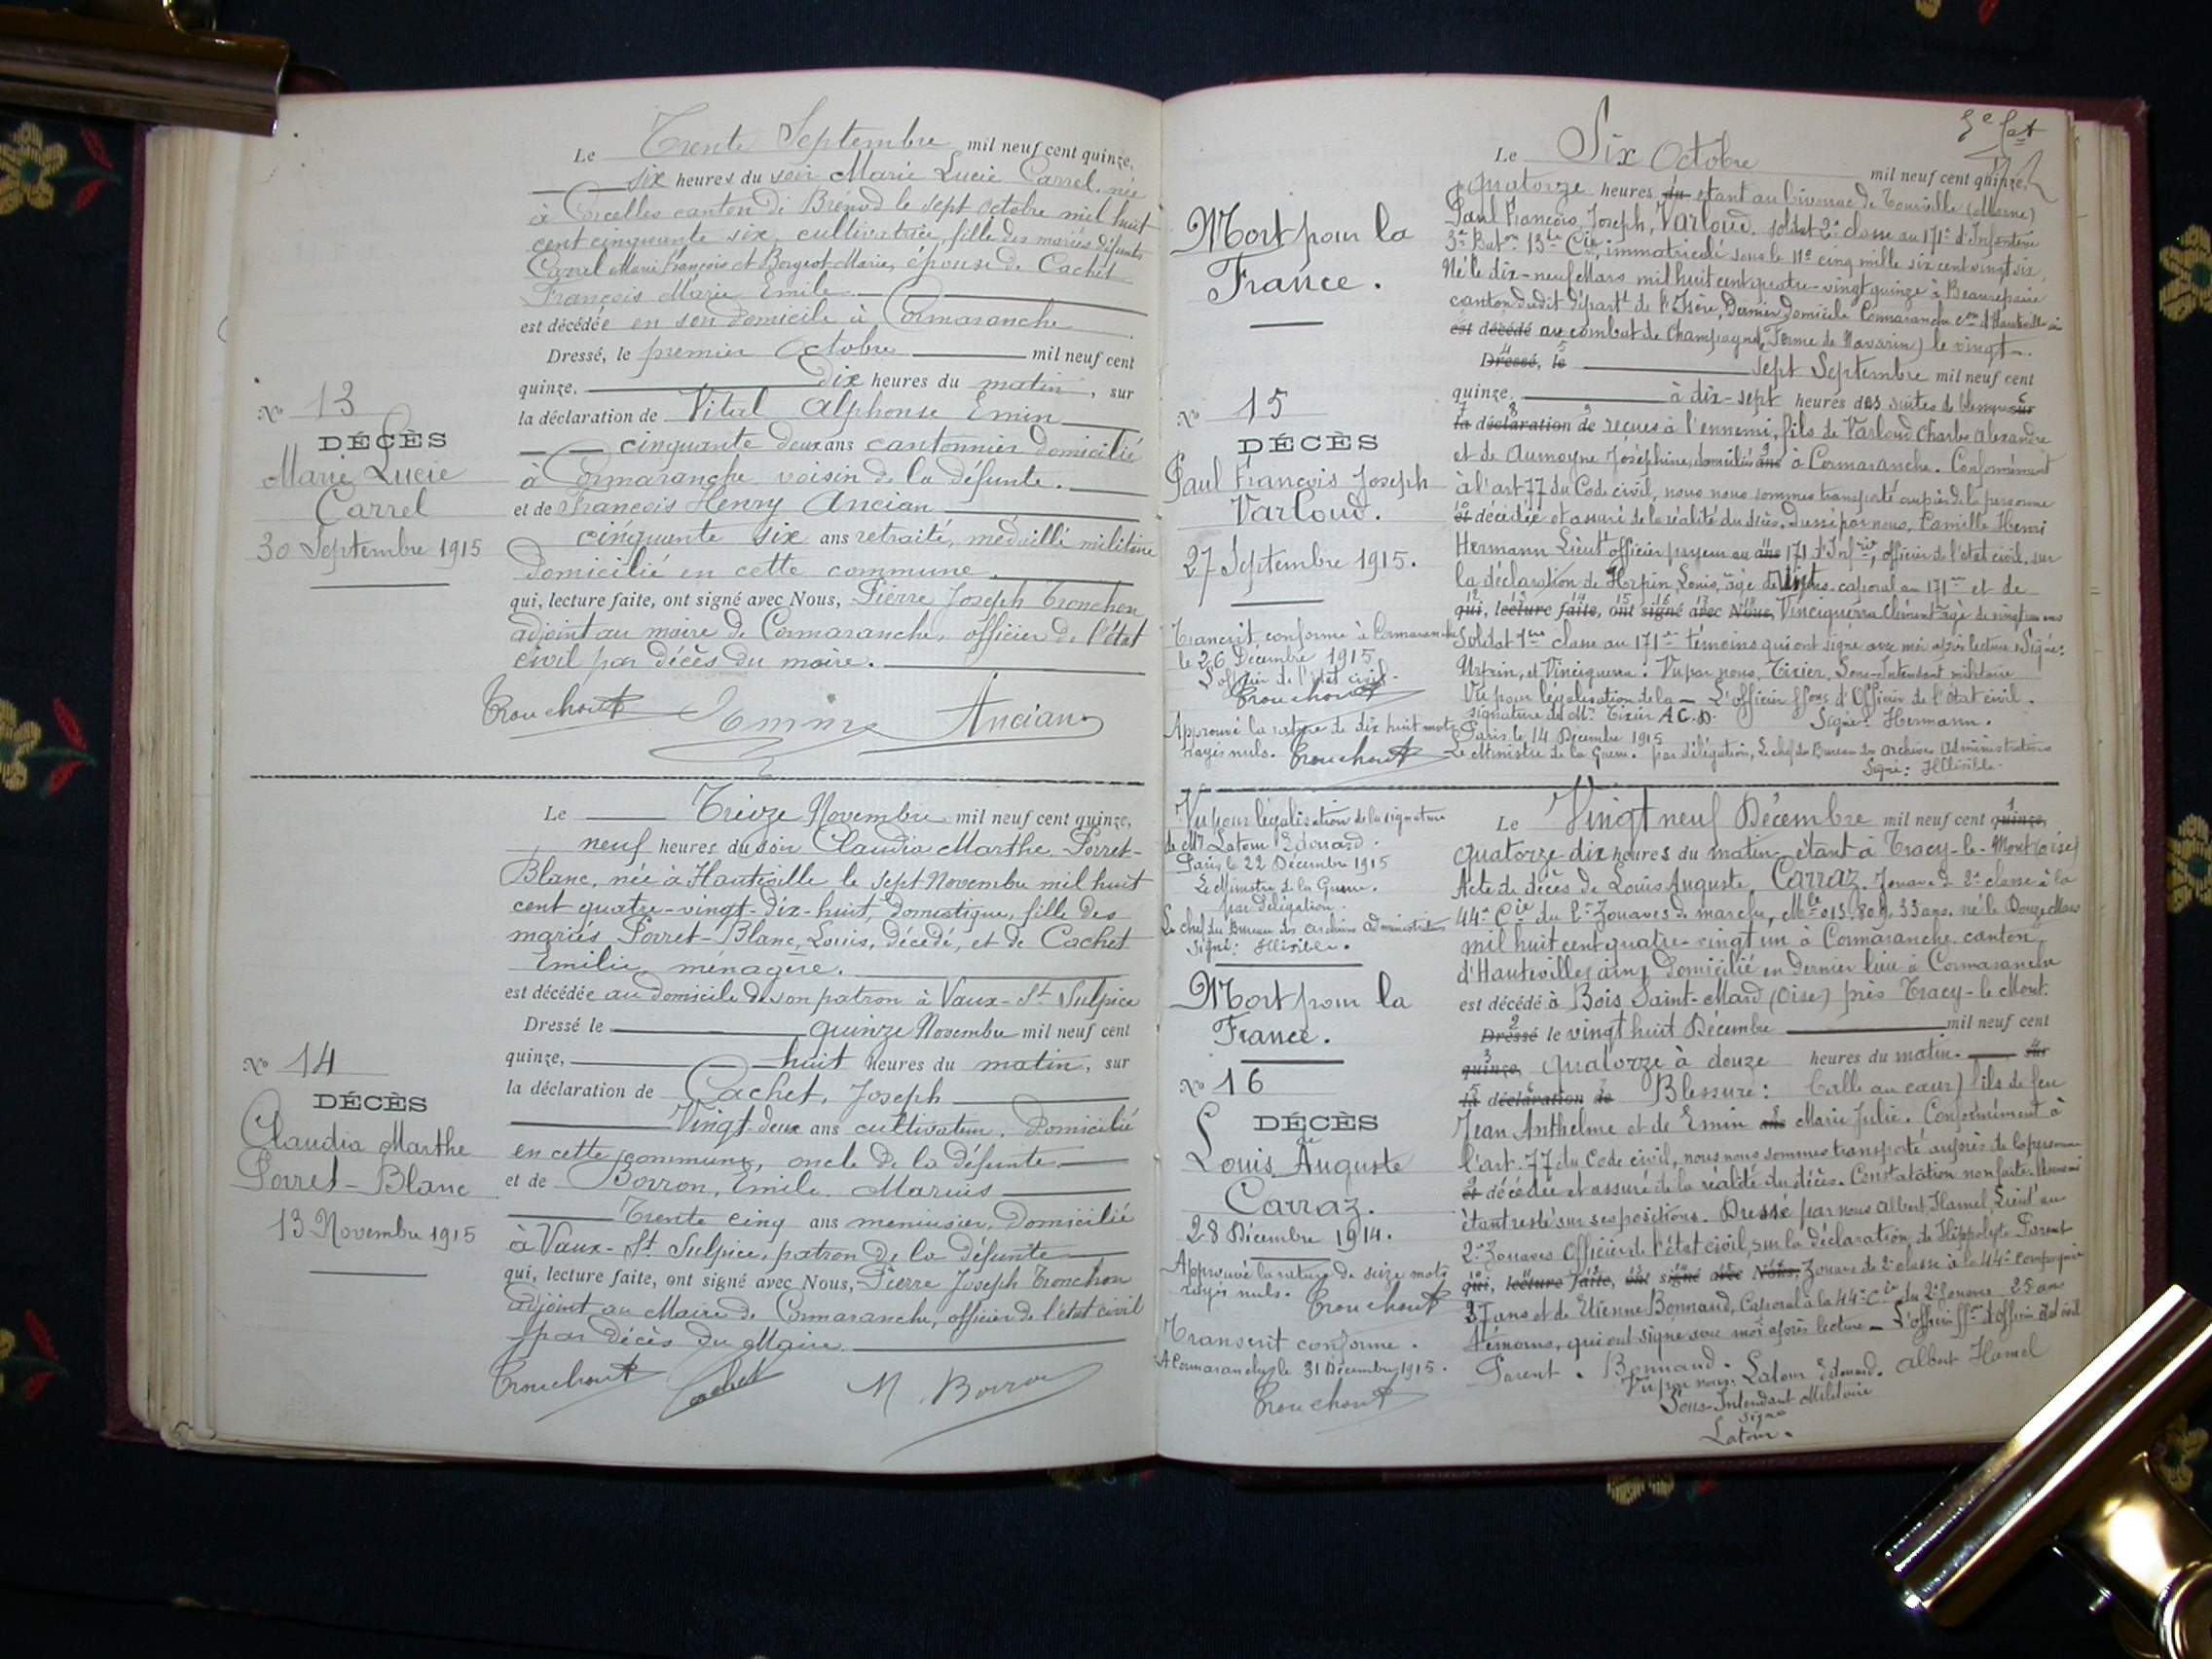 Le Trente Septembre mil neuf cent quinze,
six heures du soir Marie Lucie Carrel, née
à Corcelles canton de Brénod le sept octobre mil huit
cent cinquante six, cultivatrice, fille des mariés défunts
Carrel Marie François et Borgeot Marie, épouse de Cachet
François Marie Emile
est décédée en son domicile à Cormaranche
Dressé, le premier Octobre mil neuf cent
quinze, dix heures du matin, sur
la déclaration de Vital Alphonse Emin
cinquante deux ans cantonnier domicilié
à Cormaranche voisin de la défunte.
et de François Henry Ancian
cinquante six ans retraité, médaillé militaire
domicilié en cette commune.
qui, lecture faite, ont signé avec Nous, Pierre Joseph Tronchon
adjoint au maire de Cormaranche, officier de l'état
civil par décès du maire.
Ancian
No 13
DÉCÈS
Marie Lucie
Carrel
30 Septembre 1915
Le Treize Novembre mil neuf cent quinze,
neuf heures du soir Claudia Marthe Porret-
Blanc, née à Hauteville le sept Novembre mil huit
cent quatre-vingt-dix-huit, domestique, fille des
mariés Porret-Blanc, Louis, décédé, et de Cachet
Emilie, ménagère.
est décédée au domicile de son patron à Vaux-St Sulpice
Dressé le quinze Novembre mil neuf cent
quinze, huit heures du matin, sur
la déclaration de Cachet, Joseph
Vingt-deux ans cultivateur, domicilié
en cette commune, oncle de la défunte
et de Borron, Emile, Marius
Trente cinq ans menuisier, domicilié
à Vaux-St Sulpice, patron de la défunte
qui, lecture faite, ont signé avec Nous, Pierre Joseph Tronchon
adjoint au Maire de Cormaranche, officier de l'état civil
par décès du Maire
Cachet M. Borron
No 14
DÉCÈS
Claudia Marthe
Porret-Blanc
13 Novembre 1915
Le Six Octobre mil neuf cent quinze,
à quatorze heures du étant au bivouac de Tourville (Marne)
Paul François, Joseph, Varloud. soldat 2e classe au 171e d'Infanterie
3e Baton 13e Cie, immatriculé sous le No cinq mille six cent vingt six,
Né le dix-neuf Mars mil huit cent quatre-vingt quinze à Beaurepaire
canton dudit départt de l'Isère, Dernier domicile Cormaranche con d'Hauteville ain
est décédé au combat de Champagne, (Ferme de Navarin) le vingt-
Dressé, le sept Septembre mil neuf cent
quinze, à dix-sept heures des suites de blessures sur
la déclaration de reçues à l'ennemi, fils de Varloud Charles Alexandre
et de Aumoyne Joséphine, domiciliés ans à Cormaranche. Conformément
à l'art 77 du Code civil, nous nous sommes transporté auprès de la personne
et décédée et assuré de la réalité du décès. Dressé par nous, Camille Henri
Hermann Lieutt officier payeur au ans 171 d'Infrie, officier de l'état civil, sur
la déclaration de Louis, âgé de vingt ans, caporal au 171e et de
qui, lecture faite, ont signé avec Nous, Vinciguerra Clément âgé de vingt un ans
Soldat 1ère classe au 171e témoins qui ont signé avec moi après lecture. Signé:
et Vinciguerra. Vu par nous, Tixier, Sous-Intendant militaire
Vu pour légalisation de la — L'officier ffons d'Officier de l'état civil.
signature de Mr Tixier A.C.D. Signé: Hermann.
Paris le 14 Décembre 1915
Le Ministre de la Guerre. par délégation, Le chef du Bureau des archives administratives
Signé: Illisible.
Mort pour la
France.
No 15
DÉCÈS
Paul François Joseph
Varloud.
27 Septembre 1915.
Transcrit conforme à Cormaranche
le 26 Décembre 1915.
L'officier de l'état civil.
Approuvé la rature de dix huit mots
rayés nuls.
Le Vingt neuf Décembre mil neuf cent quinze,
quatorze dix heures du matin étant à Tracy-le-Mont (Oise)
Acte de décès de Louis Auguste, Carraz. Zouave de 2e classe à la
44e Cie du 2e Zouaves de marche, Mle 013,809, 33 ans. né le Douze Mars
mil huit cent quatre-vingt un à Cormaranche canton
d'Hauteville, ain, domicilié en dernier lieu à Cormaranche
est décédé à Bois Saint-Mard (Oise) près Tracy-le Mont.
Dressé le vingt huit Décembre mil neuf cent
quinze, quatorze à douze heures du matin. sur
la déclaration de Blessure: balle au cœur) fils de feu
Jean Anthelme et de Emin ans Marie Julie. Conformément à
l'art. 77 du Code civil, nous nous sommes transporté auprès de la personne
et décédée et assuré de la réalité du décès. Constatation non faite. l'ennemi
étant resté sur ses positions. Dressé par nous Albert, Hamel, Lieutt au
2e Zouaves Officier de l'état civil, sur la déclaration de Hippolyte Parent
qui, lecture faite, ont signé avec Nous, Zouave de 2e classe à la 44e compagnie
37 ans et de Etienne Bonnaud, Caporal à la 44e Cie du 2e Zouaves 25 ans
témoins, qui ont signé avec moi après lecture — L'officier ffon d'Officier état civil
Parent. Bonnaud. Albert Hamel
Vu par nous: Latour Edouard.
Sous-Intendant Militaire
Signé
Latour.
Vu pour légalisation de la signature
de Mr Latour Edouard.
Paris, le 22 Décembre 1915
Le Ministre de la Guerre.
par délégation.
Le chef du Bureau des archives administratives
Signé: Illisible.
Mort pour la
France.
No 16
DÉCÈS
de
Louis Auguste
Carraz.
28 Décembre 1914.
Approuvé la rature de seize mots
rayés nuls.
Transcrit conforme.
A Cormaranche le 31 Décembre 1915.